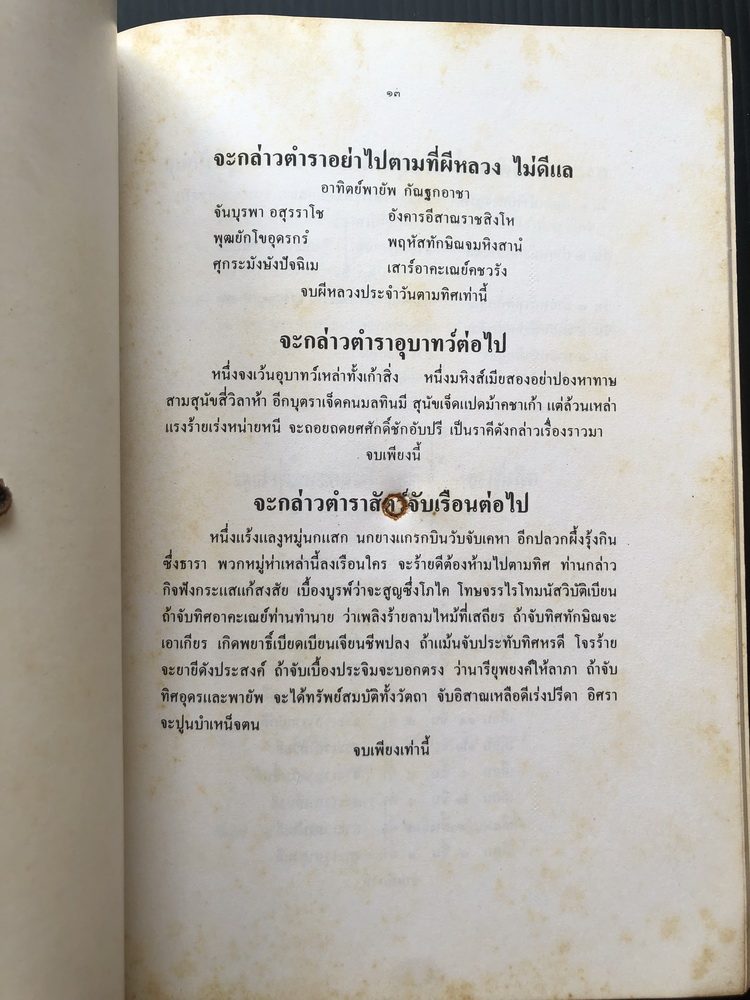 ๑๓
จะกล่าวตำราอย่าไปตามที่ผีหลวง ไม่ดีแล
อาทิตย์พายัพ กัณฐกอาชา
จันบุรพา อสุรราโช อังคารอีสาณราชสิงโห
พุฒยักโขอุดรกรํ พฤหัสทักษิณจมหิงสานํ
ศุกระมังษังปัจฉิเม เสาร์อาคะเณย์คชวรัง
จบผีหลวงประจำวันตามทิศเท่านี้
จะกล่าวตำราอุบาทว์ต่อไป
หนึ่งจงเว้นอุบาทว์เหล่าทั้งเก้าสิ่ง หนึ่งมหิงส์เมียสองอย่าปองหาทาษ
สามสุนัขสี่วิลาห้า อีกบุตราเจ็ดคนมลทินมี สุนัขเจ็ดแปดม้าคชาเก้า แต่ล้วนเหล่า
แรงร้ายเร่งหน่ายหนี จะถอยถดยศศักดิ์ชักอับปรี เป็นราคีดังกล่าวเรื่องราวมา
จบเพียงนี้
จะกล่าวตำราสัตว์จับเรือนต่อไป
หนึ่งแร้งแลงูหมู่นกแสก นกยางแกรกบินวับจับเคหา อีกปลวกผึ้งรุ้งกิน
ซึ่งธารา พวกหมู่ห่าเหล่านี้ลงเรือนใคร จะร้ายดีต้องห้ามไปตามทิศ ท่านกล่าว
กิจฟังกระแสแก้สงสัย เบื้องบูรพ์ว่าจะสูญซึ่งโภไค โทษจรรไรโทมนัสวิบัติเบียน
ถ้าจับทิศอาคะเณย์ท่านทำนาย ว่าเพลิงร้ายลามไหม้ที่เสถียร ถ้าจับทิศทักษิณจะ
เอาเกียร เกิดพยาธิ์เบียดเบียนเจียนชีพปลง ถ้าแม้นจับประทับทิศหรดี โจรร้าย
จะยายีดังประสงค์ ถ้าจับเบื้องประจิมจะบอกตรง ว่านารียุพยงค์ให้ลาภา ถ้าจับ
ทิศอุดรและพายัพ จะได้ทรัพย์สมบัติทั้งวัตถา จับอิสาณเหลือดีเร่งปรีดา อิศรา
จะปูนบำเหน็จตน
จบเพียงเท่านี้